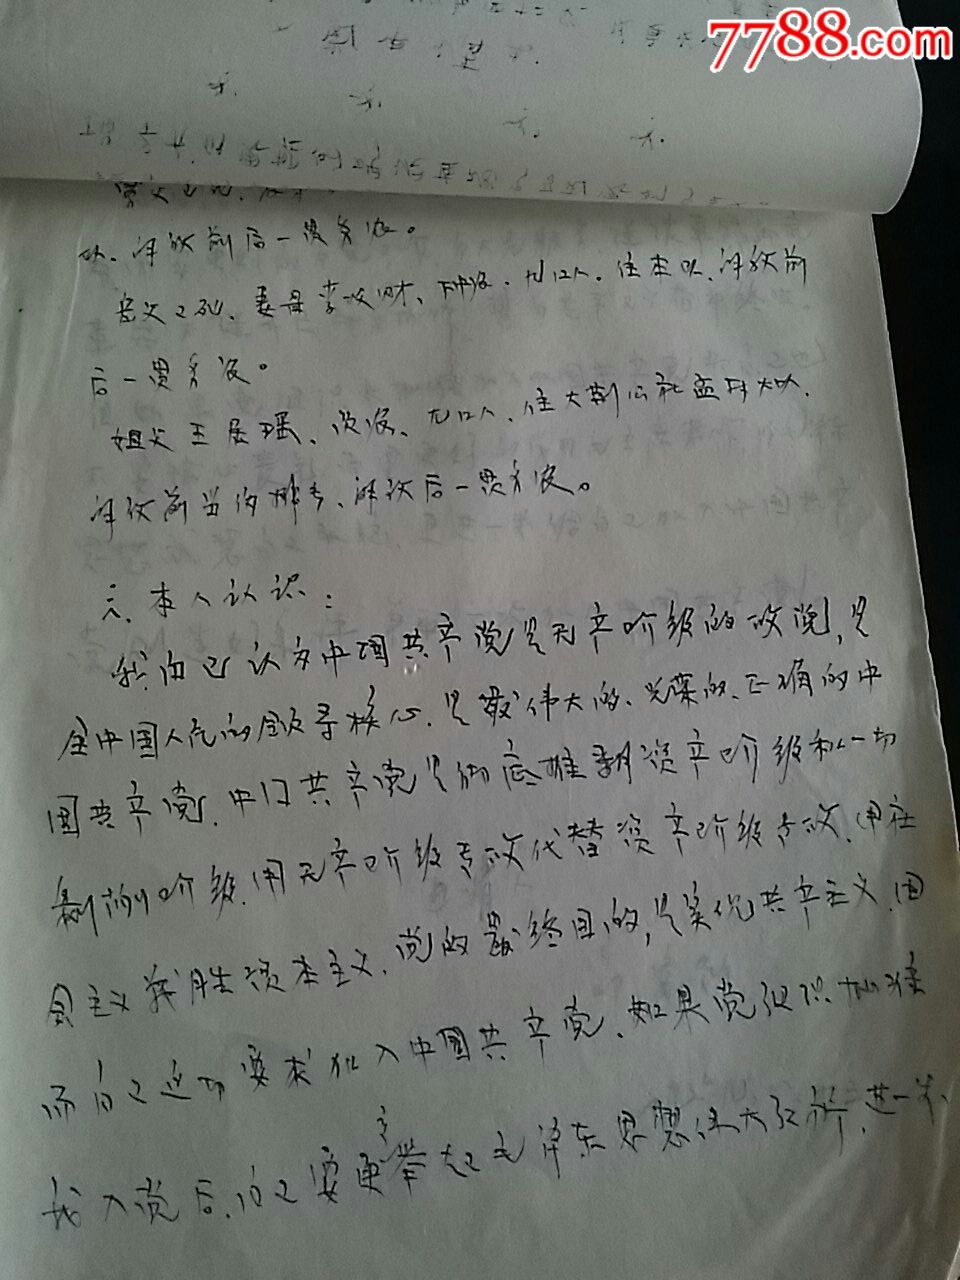 7788.com
队、解放前后一贯务农。
岳父已死，妻母李 财、中农、九口人、住本队、解放前
后一贯务农。
姐夫王居瑶、贫农、九口人、住大荆公社孟村大队、
解放前当伪排长、解放后一贯务农。
六、本人认识：
我自己认为中国共产党是无产阶级的政党，是
全中国人民的领导核心，是最伟大的、光荣的、正确的中
国共产党，中国共产党是彻底推翻资产阶级和一切
剥削阶级，用无产阶级专政代替资产阶级专政，用社
会主义战胜资本主义，党的最终目的，是实现共产主义，因
而自己迫切要求加入中国共产党，如果党组织批准
我入党后，自己要更高举起毛泽东思想伟大红旗，进一步、